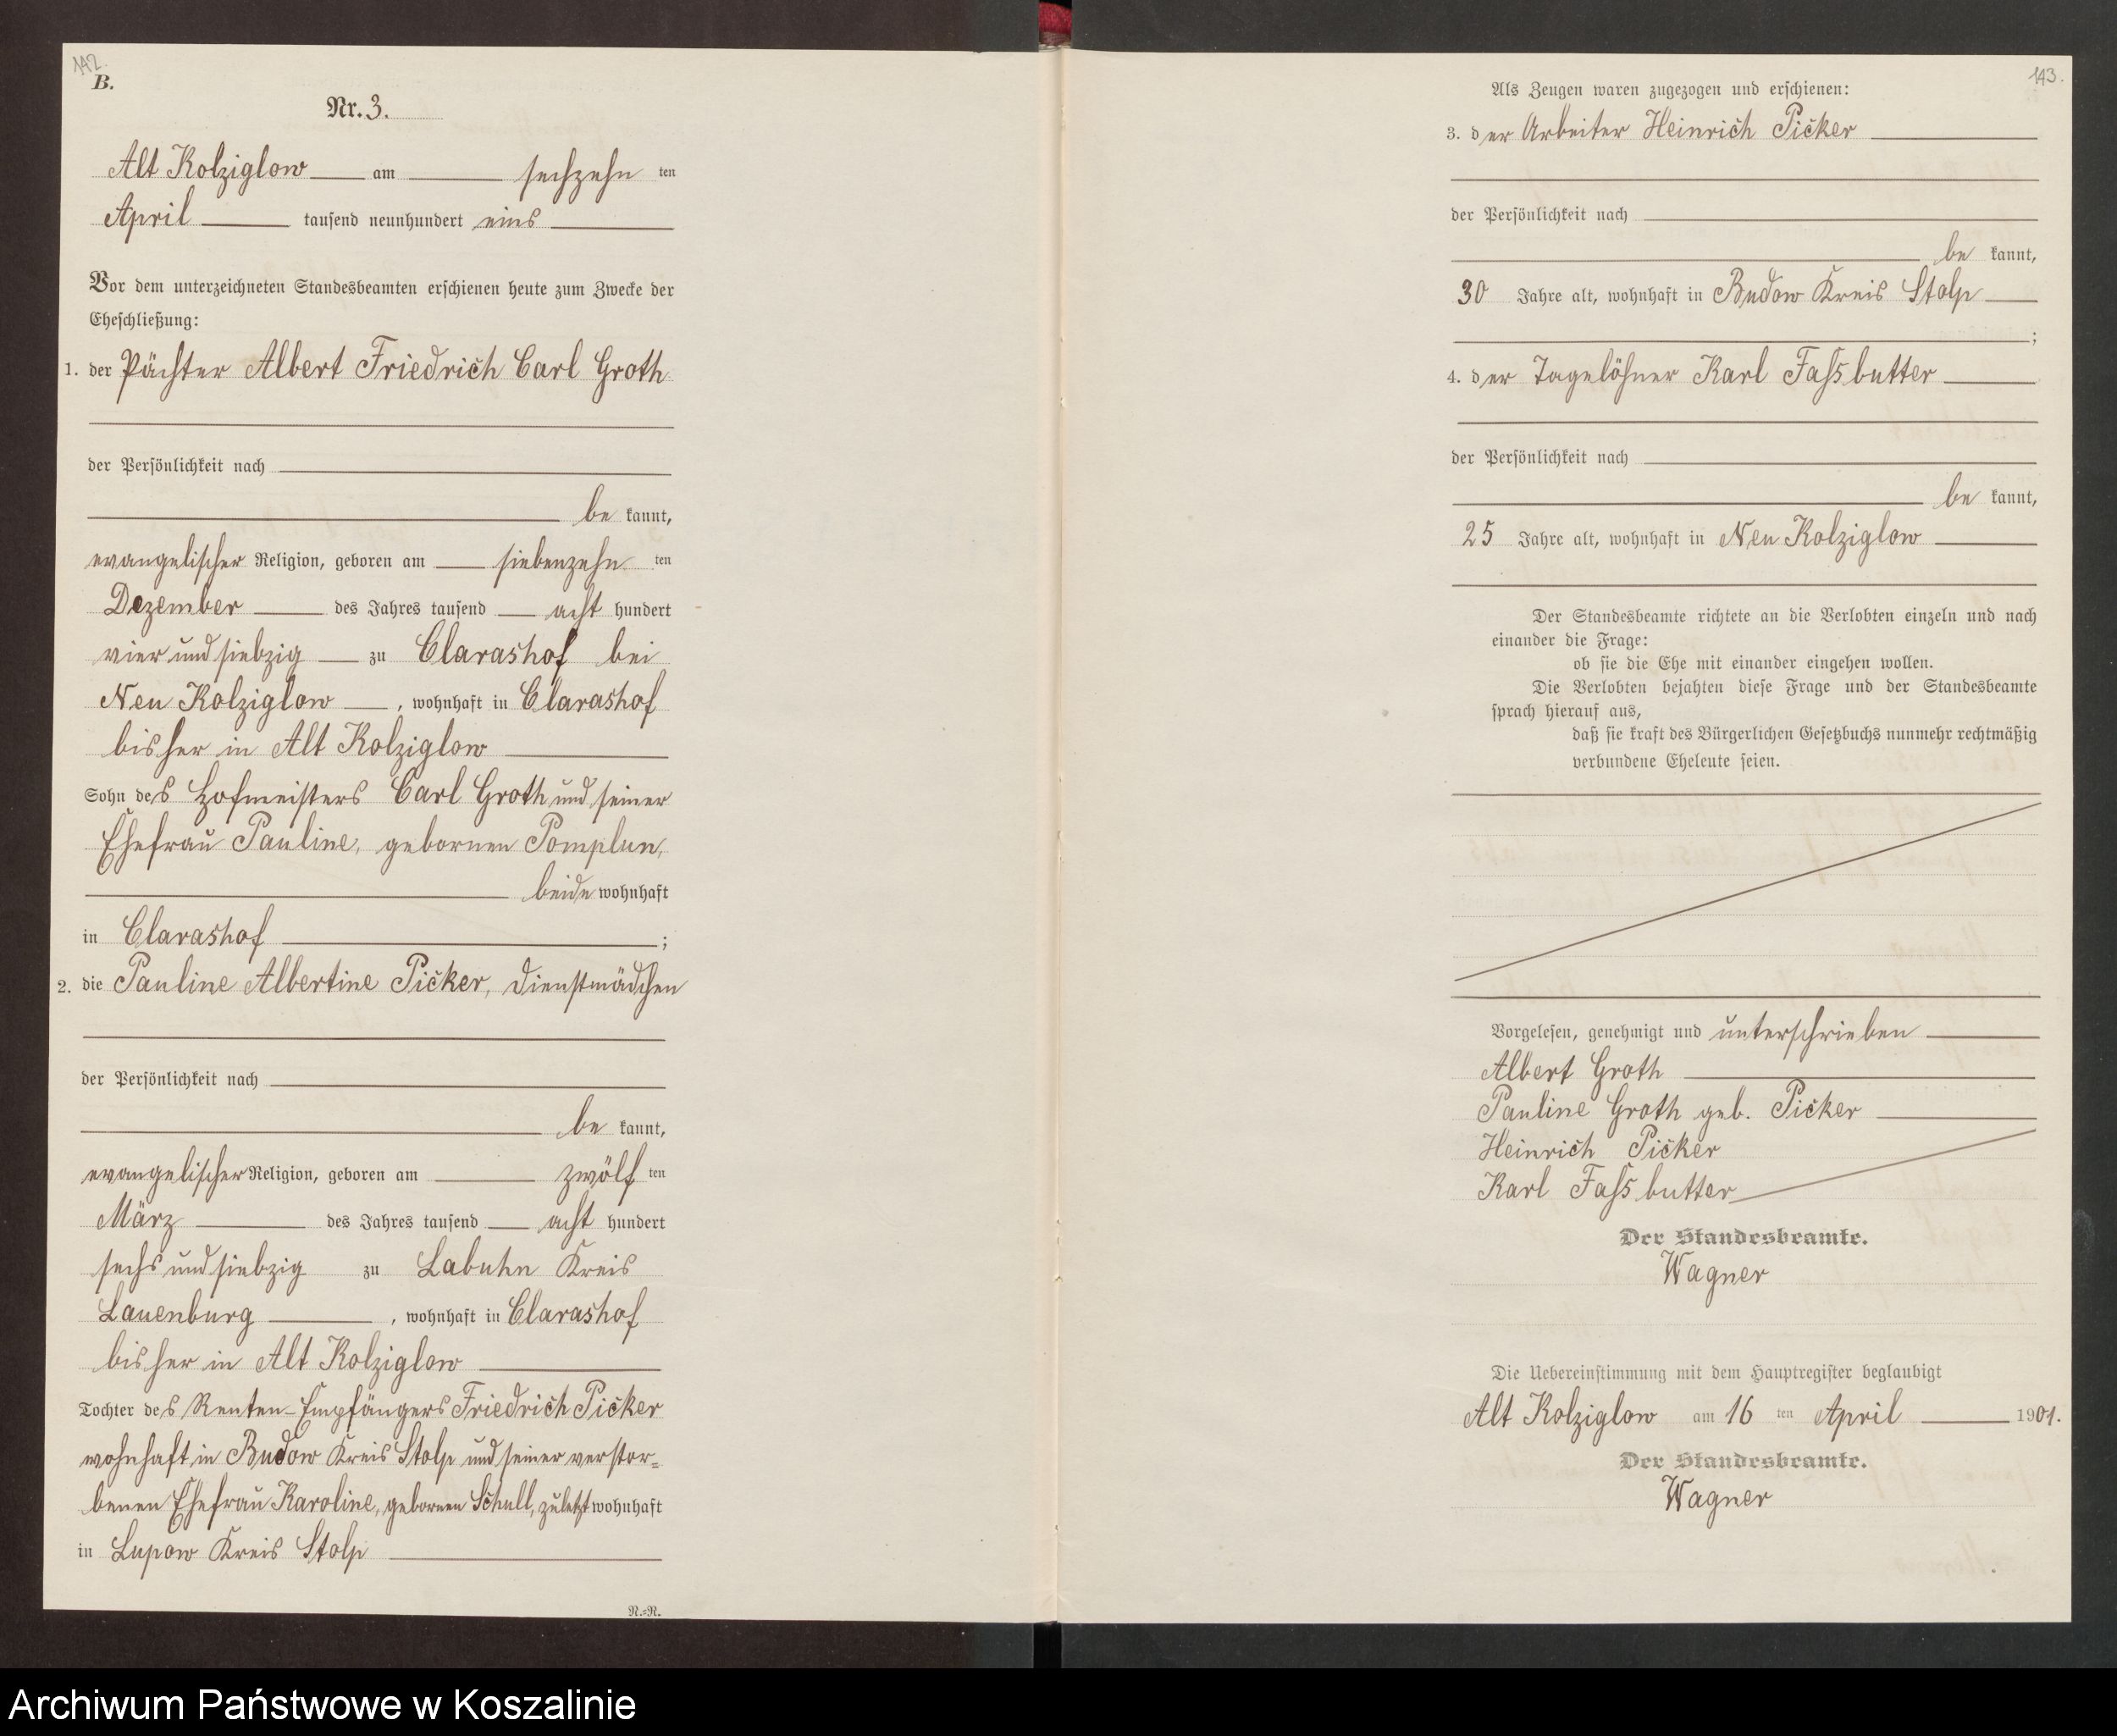 142.
B.
Nr. 3.
Alt Kolziglow am sechzehn ten
April tausend neunhundert eins
Vor dem unterzeichneten Standesbeamten erschienen heute zum Zwecke der
Eheschließung:
1. der Pächter Albert Friedrich Carl Groth
der Persönlichkeit nach
be kannt,
evangelischer Religion, geboren am siebenzehn ten
Dezember des Jahres tausend acht hundert
vier und siebzig zu Clarashof bei
Neu Kolziglow, wohnhaft in Clarashof
bisher in Alt Kolziglow
Sohn des Hofmeisters Carl Groth und seiner
Ehefrau Pauline, gebornen Pomplun,
beide wohnhaft
in Clarashof ;
2. die Pauline Albertine Picker, Dienstmädchen
der Persönlichkeit nach
be kannt,
evangelischer Religion, geboren am zwölf ten
März des Jahres tausend acht hundert
sechs und siebzig zu Labuhn Kreis
Lauenburg, wohnhaft in Clarashof
bisher in Alt Kolziglow
Tochter des Renten-Empfängers Friedrich Picker
wohnhaft in Budow Kreis Stolp und seiner verstor-
benen Ehefrau Karoline, gebornen Schull, zuletzt wohnhaft
in Lupow Kreis Stolp
R.=R.
143.
Als Zeugen waren zugezogen und erschienen:
3. der Arbeiter Heinrich Picker
der Persönlichkeit nach
be kannt,
30 Jahre alt, wohnhaft in Budow Kreis Stolp
;
4. der Tagelöhner Karl Fassbutter
der Persönlichkeit nach
be kannt,
25 Jahre alt, wohnhaft in Neu Kolziglow
Der Standesbeamte richtete an die Verlobten einzeln und nach
einander die Frage:
ob sie die Ehe mit einander eingehen wollen.
Die Verlobten bejahten diese Frage und der Standesbeamte
sprach hierauf aus,
daß sie kraft des Bürgerlichen Gesetzbuchs nunmehr rechtmäßig
verbundene Eheleute seien.
Vorgelesen, genehmigt und unterschrieben
Albert Groth
Pauline Groth geb. Picker
Heinrich Picker
Karl Fassbutter
Der Standesbeamte.
Wagner
Die Uebereinstimmung mit dem Hauptregister beglaubigt
Alt Kolziglow am 16 ten April 1901.
Der Standesbeamte.
Wagner
Archiwum Państwowe w Koszalinie